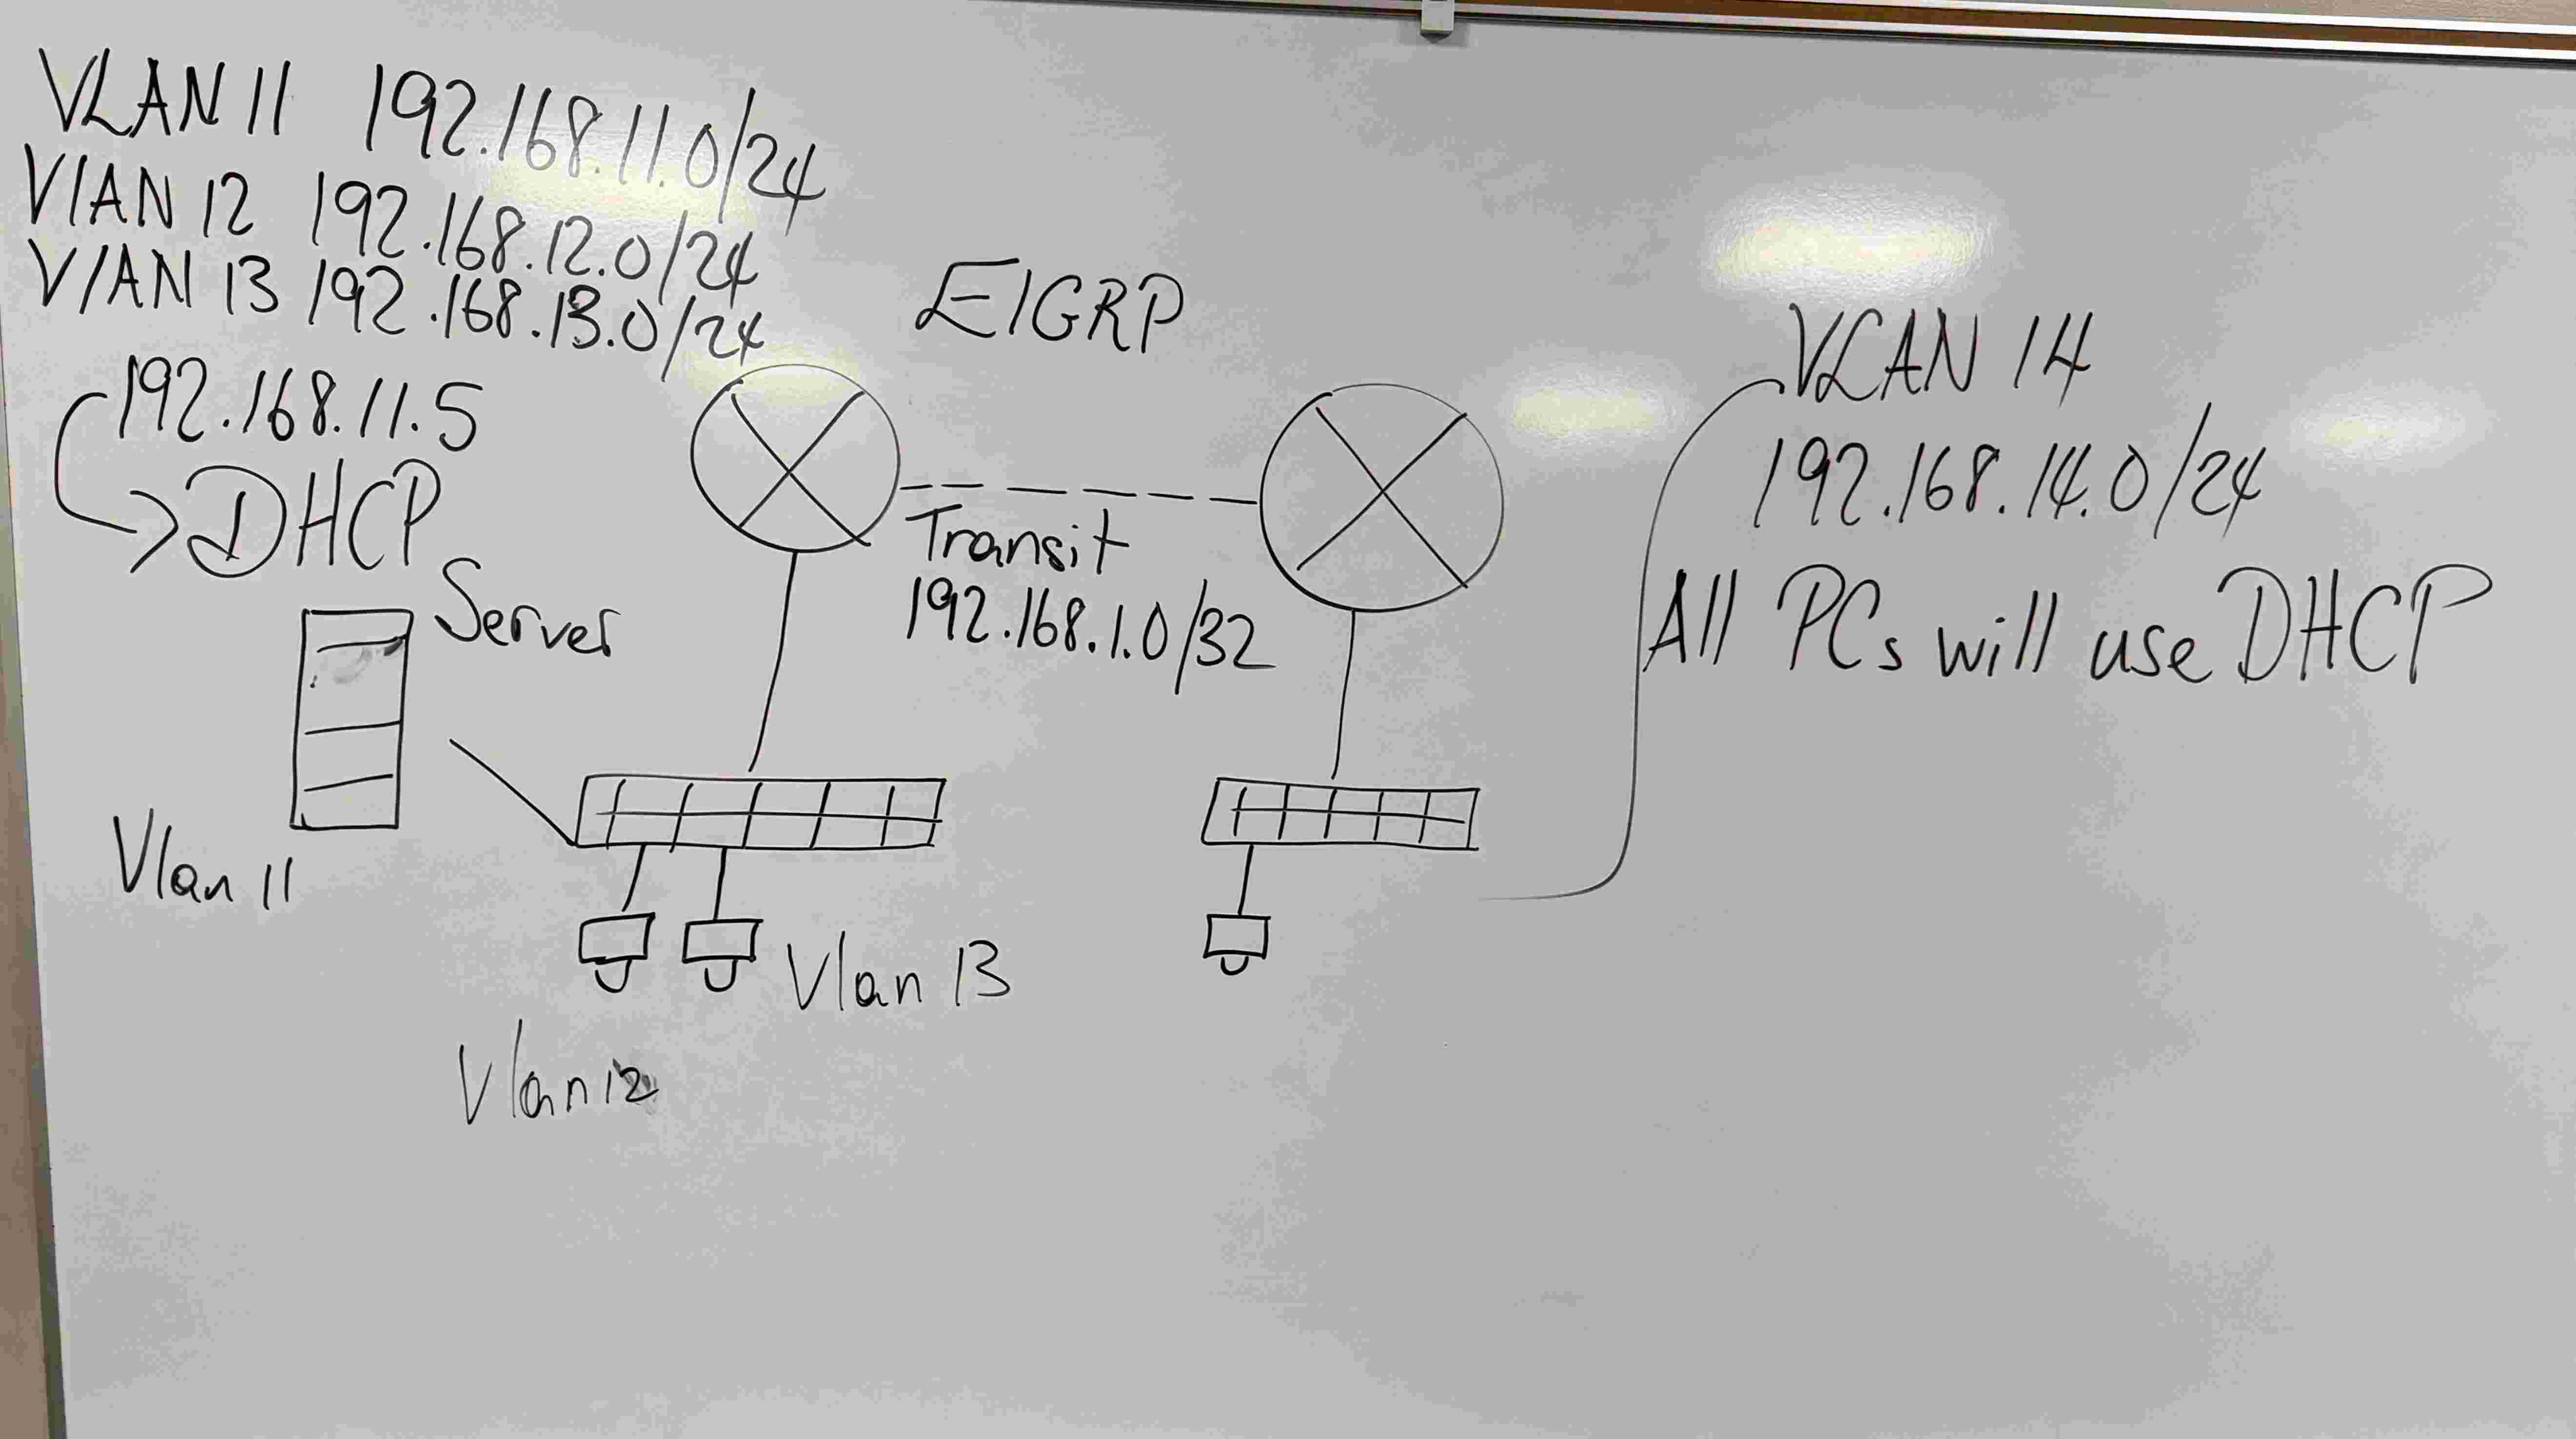 VLAN 11 192.168.11.0/24
VLAN 12 192.168.12.0/24
VLAN 13 192.168.13.0/24
192.168.11.5
DHCP
Server
Vlan 11
EIGRP
Transit
192.168.1.0/32
Vlan 13
Vlan12
VLAN 14
192.168.14.0/24
All PCs will use DHCP